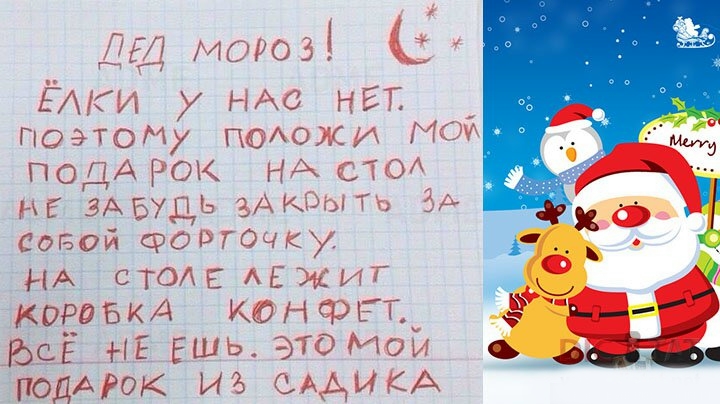 ДЕД МОРОЗ!
ЁЛКИ У НАС НЕТ.
ПОЭТОМУ ПОЛОЖИ МОЙ
ПОДАРОК НА СТОЛ
НЕ ЗАБУДЬ ЗАКРЫТЬ ЗА
СОБОЙ ФОРТОЧКУ.
НА СТОЛЕ ЛЕЖИТ
КОРОБКА КОНФЕТ.
ВСЁ НЕ ЕШЬ. ЭТО МОЙ
ПОДАРОК ИЗ САДИКА
Merry